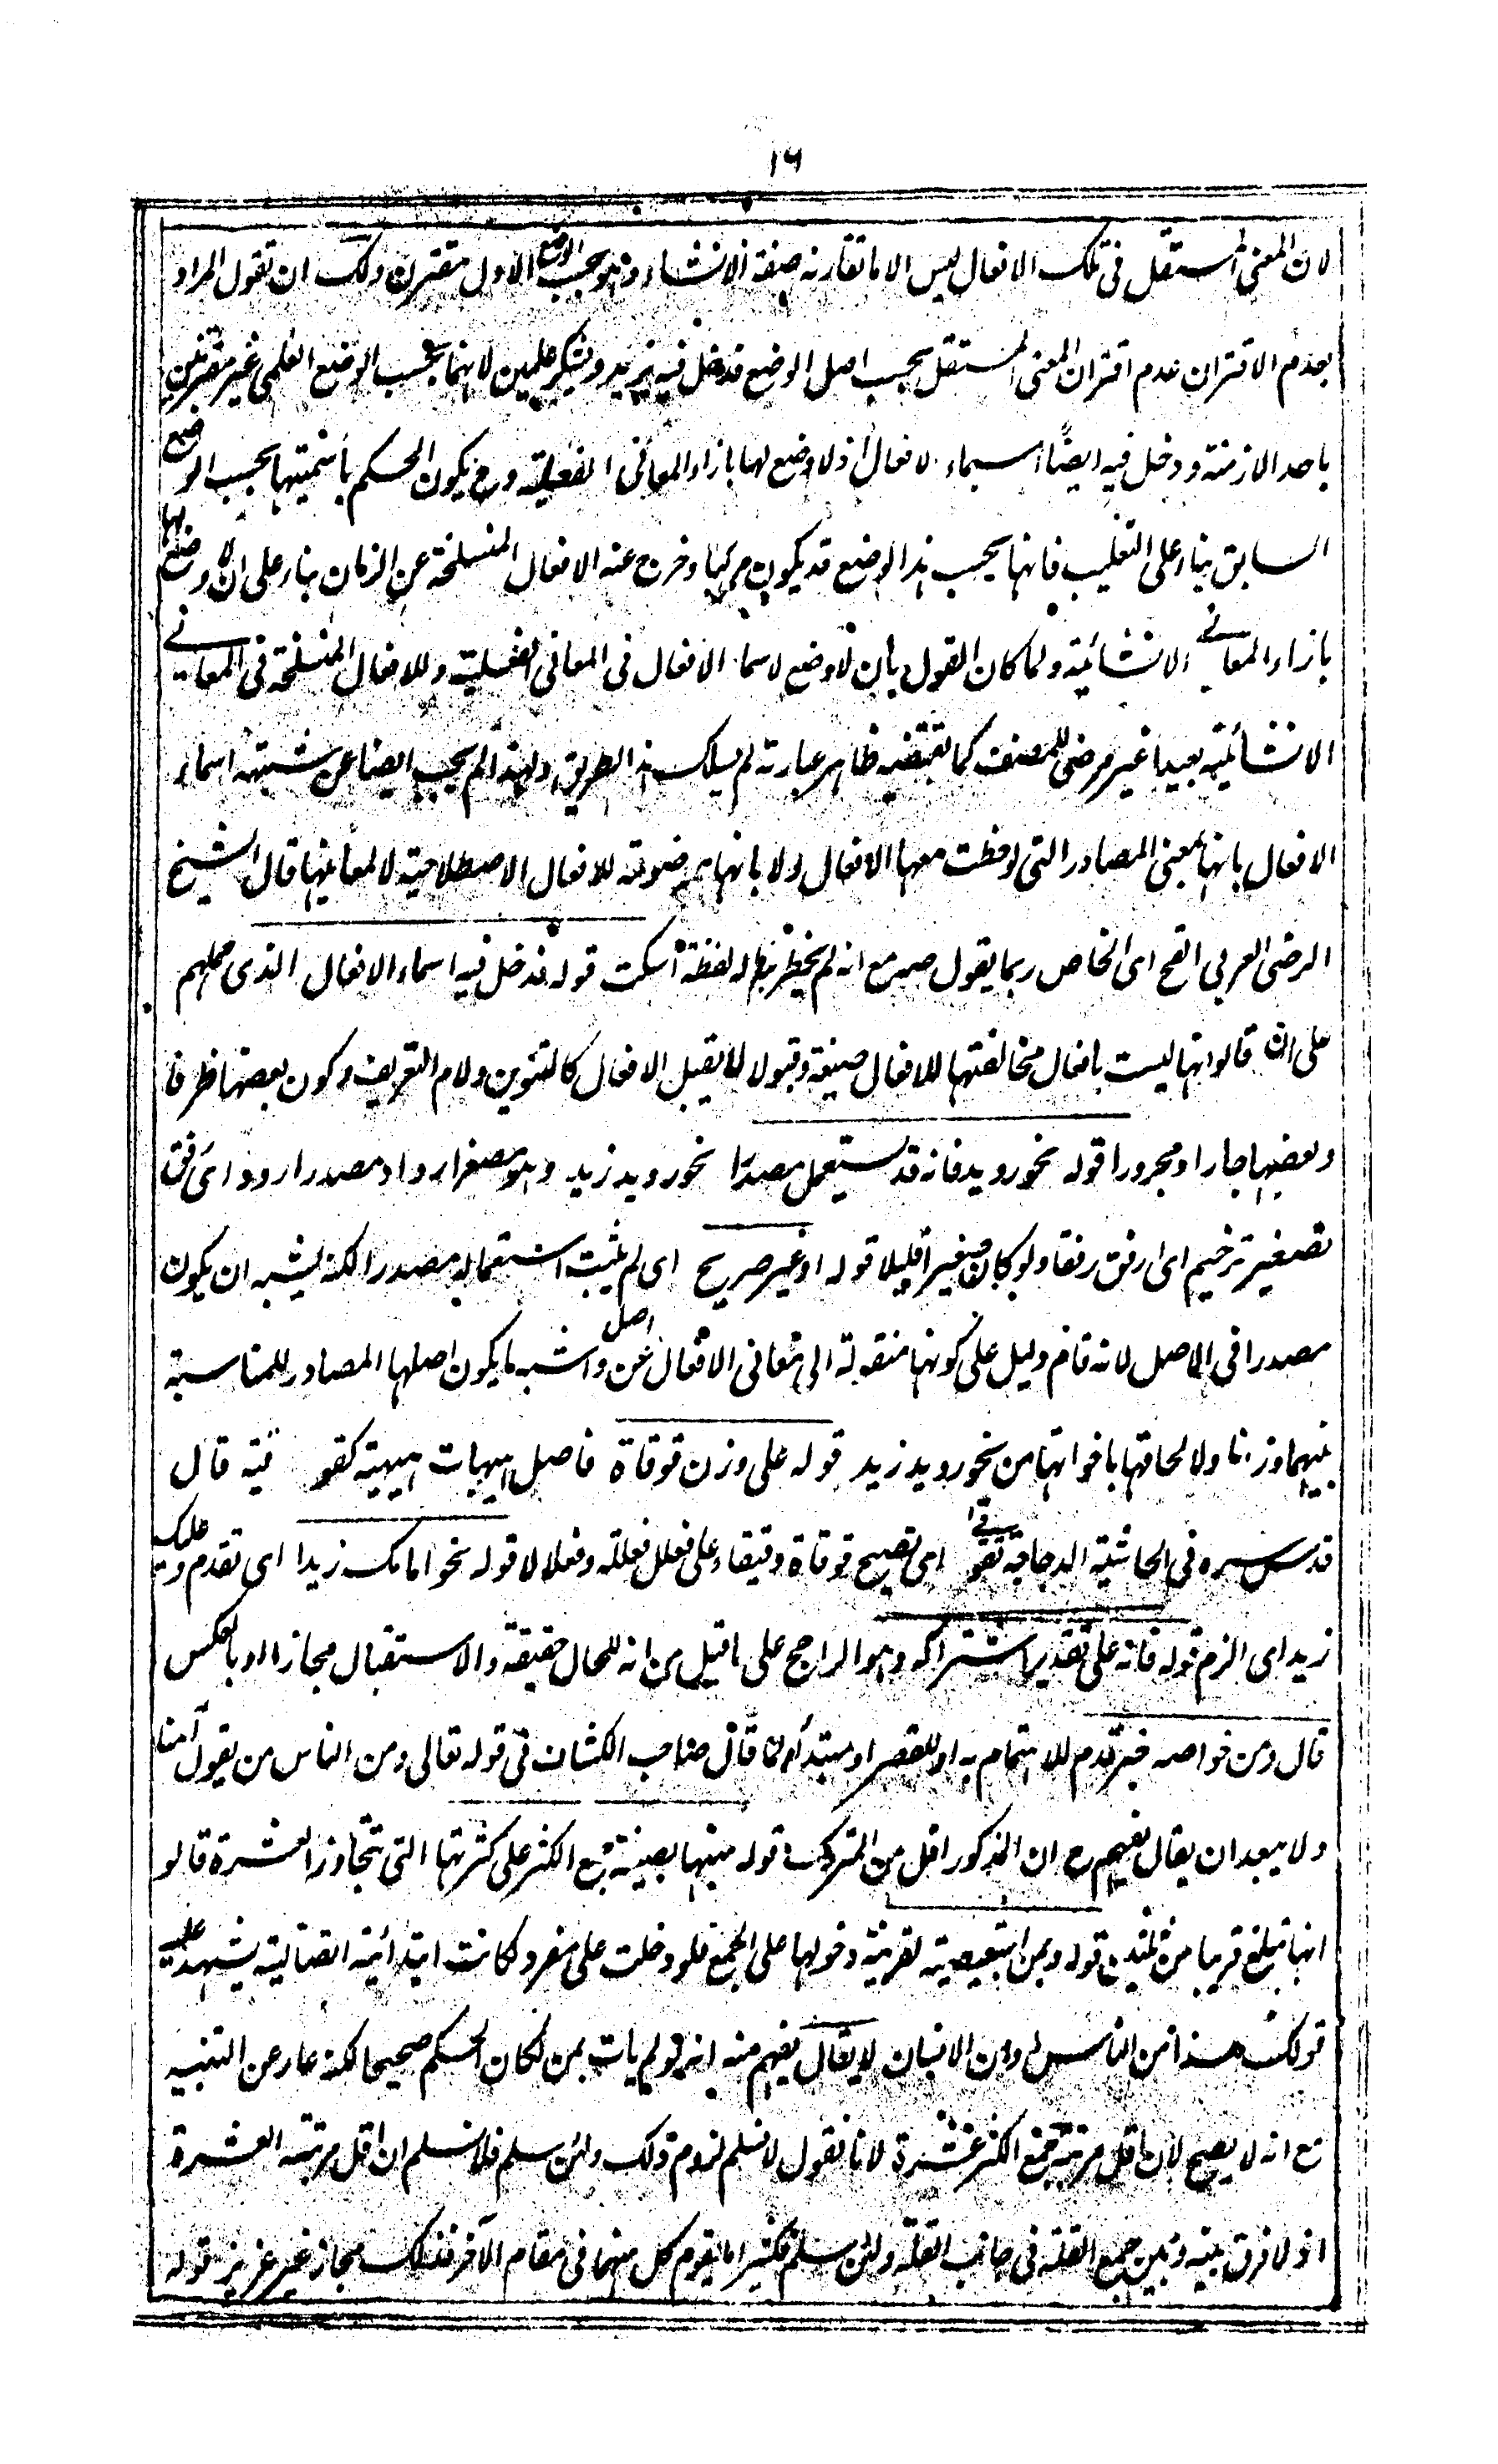 ١٦
لان المعنى المستقل فى تلك الافعال ليس الا ما تقارنه صفة الانشاء وهو بحسب الوضع الاول مقترن ولك ان تقول المراد
بعدم الاقتران عدم اقتران المعنى المستقل بحسب اصل الوضع فدخل فيه يزيد ويشكر علمين لانهما بحسب الوضع العلمى غير مقترنين
باحد الازمنة ودخل فيه ايضًا اسماء الافعال اذ لا وضع لها بازاء المعانى الفعلية وح يكون الحكم باسميتها بحسب الوضع
السابق بناء على التغليب فانها بحسب هذا الوضع قد يكون مركبا وخرج عنه الافعال المنسلخة عن الزمان بناء على ان لا وضع لها
بازاء المعانى الانشائية ولما كان القول بان لا وضع لاسماء الافعال فى المعانى الفعلية وللافعال المنسلخة فى المعانى
الانشائية بعيدا غير مرضى للمصنف كما تقتضيه ظاهر عبارته لم يسلك هذا الطريق ولهذا لم يجب ايضا عن شبهة اسماء
الافعال بانها بمعنى المصادر التى لوحظت معها الافعال ولا بانها موضوعة للافعال الاصطلاحية لا لمعانيها قال الشيخ
الرضى العربى القح اى الخاص ربما يقول صه مع انه لم يخطر بباله لفظة اسكت قوله فدخل فيه اسماء الافعال الذى حملهم
على ان قالوا انها ليست بافعال مخالفتها للافعال صيغة وقبولا لما لا يقبل الافعال كالتنوين ولام التعريف وكون بعضها ظرفا
وبعضها جارا ومجرورا قوله نحو رويد فانه قد يستعمل مصدرًا نحو رويد زيد وهو مصغر ارواد مصدر ارود اى رفق
تصغير ترخيم اى ارفق رفقا ولو كان صغيرا قليلا قوله او غير صريح اى لم يثبت استعماله مصدرا لكنه يشبه ان يكون
مصدرا فى الاصل لانه قام دليل على كونها منقولة الى معانى الافعال عن اصل واشبه ما يكون اصلها المصادر للمناسبة
بينهما وزنا ولالحاقها باخواتها من نحو رويد زيد قوله على وزن قوقاة فاصل هيهات هيهية كقوقية قال
قدس سره فى الحاشية الدجاجة تقوقى اى تصيح قوقاة وقيقاء على فعلل فعللة وفعلالا قوله نحو امامك زيدا اى تقدم وعليك
زيدا اى الزم قوله فانه على تقدير اشتراكه وهو الراجح على ما قيل من انه للحال حقيقة والاستقبال مجازا او بالعكس
قال ومن خواصه خبر قدم للاهتمام به او للقصر او مبتدأ لما قال صاحب الكشاف فى قوله تعالى ومن الناس من يقول آمنا
ولا يبعد ان يقال يفهم ح ان المذكور اقل من المتروك قوله منبها بصيغة جمع الكثرة على كثرتها التى تتجاوز العشرة قالوا
انها تبلغ قريبا من ثلثين قوله وبمن التبعيضية لقرينة دخولها على الجمع فلو دخلت على مفرد لكانت ابتدائية اتصالية يشهد عليه
قولك هذا من الناس او من الانسان لا يقال يفهم منه انه لو لم يات بمن لكان الحكم صحيحا لكنه عار عن التنبيه
مع انه لا يصح لان اقل مرتبة جمع الكثرة عشرة لانا نقول لا نسلم لزوم ذلك ولئن سلم فلا نسلم ان اقل مرتبته العشرة
اذ لا فرق بينه وبين جمع القلة فى جانب القلة ولئن سلم فكثيرا ما يقوم كل منهما فى مقام الآخر فذلك مجاز غير عزيز قوله